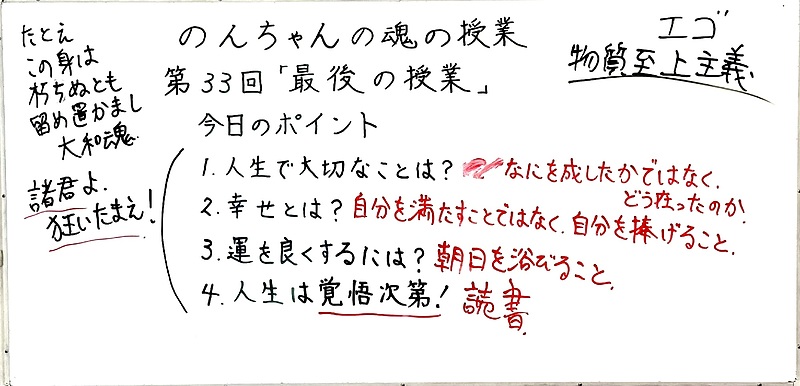 たとえ
この身は
朽ちぬとも
留め置かまし
大和魂
諸君よ、
狂いたまえ!
のんちゃんの魂の授業
第33回「最後の授業」
今日のポイント
1.人生で大切なことは? なにを成したかではなく、
どう在ったのか?
2.幸せとは? 自分を満たすことではなく、自分を捧げること、
3.運を良くするには? 朝日を浴びること、
4.人生は覚悟次第! 読書、
エゴ
物質至上主義、